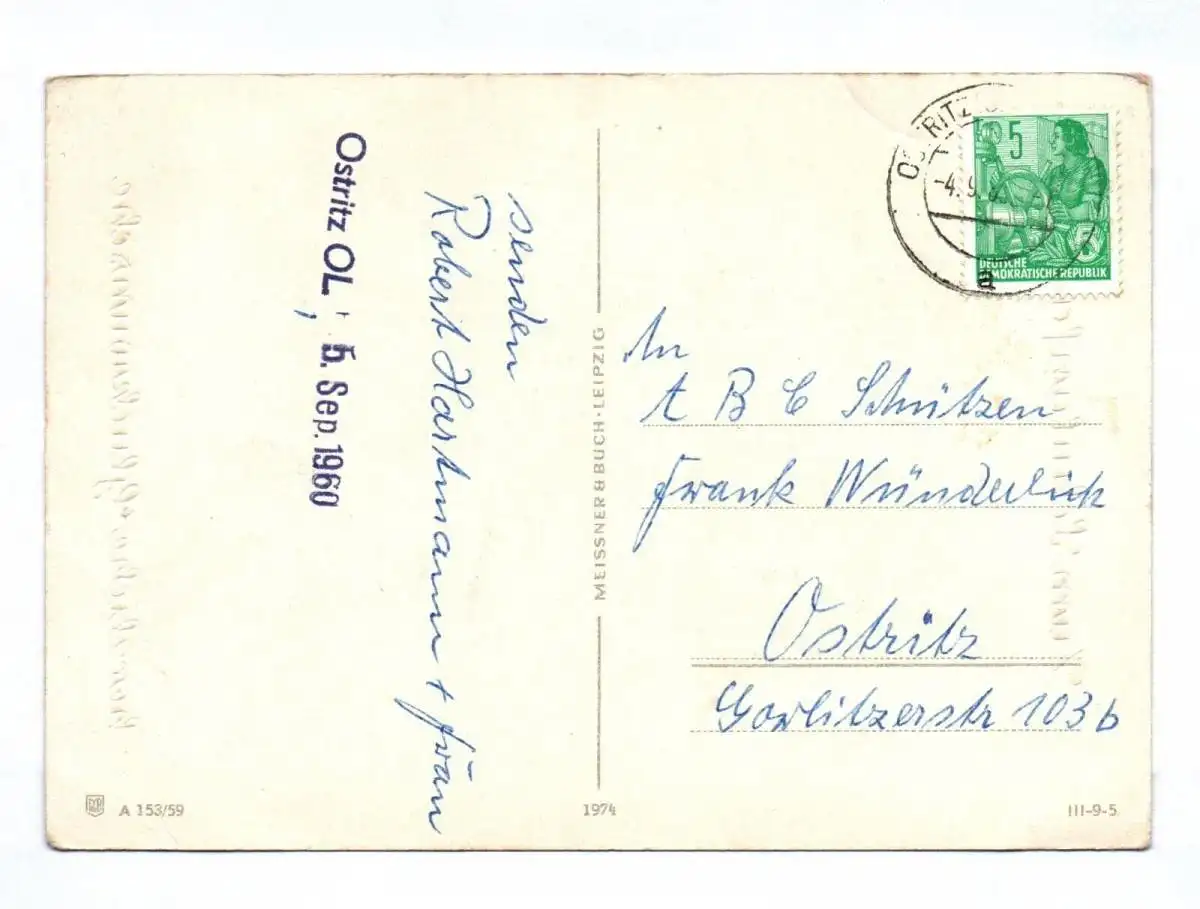 senden
Robert Hartmann + Frau
Ostritz OL.
5. Sep. 1960
MEISSNER & BUCH · LEIPZIG
OSTRITZ
-4.9.
a
5
5
DEUTSCHE
DEMOKRATISCHE REPUBLIK
An
A B C Schützen
Frank Wünderlich
Ostritz
Görlitzerstr 103b
A 153/59
1974
III-9-5